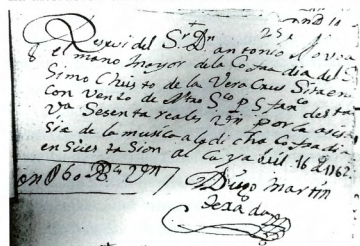 Resevi del Sr Dn antonio Novoa
el mano mayor de la Cofradia del S
Simo Christo de la Vera Cruz Sita en
Con vento de Nro S Pe S fanco desta
Va Sesenta reales Vn por la asis
sia de la musica a la dicha Cofradia
en Su esta Sion al Ca ya bril 16 d 1762
Diego Martin